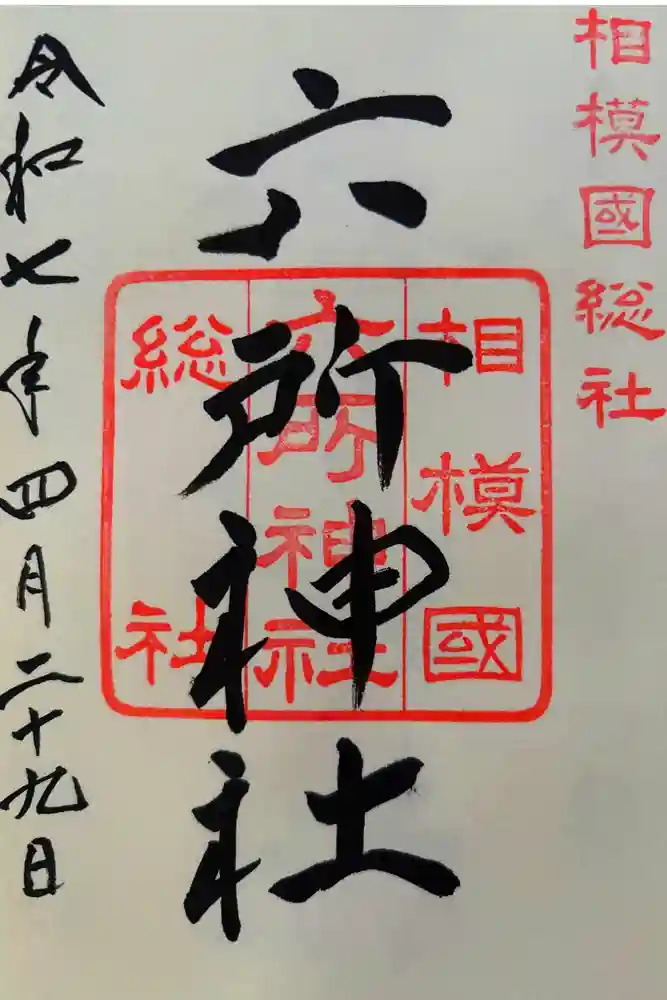 相模國総社
六所神社
相模國
六所神社
総社
令和七年四月二十九日